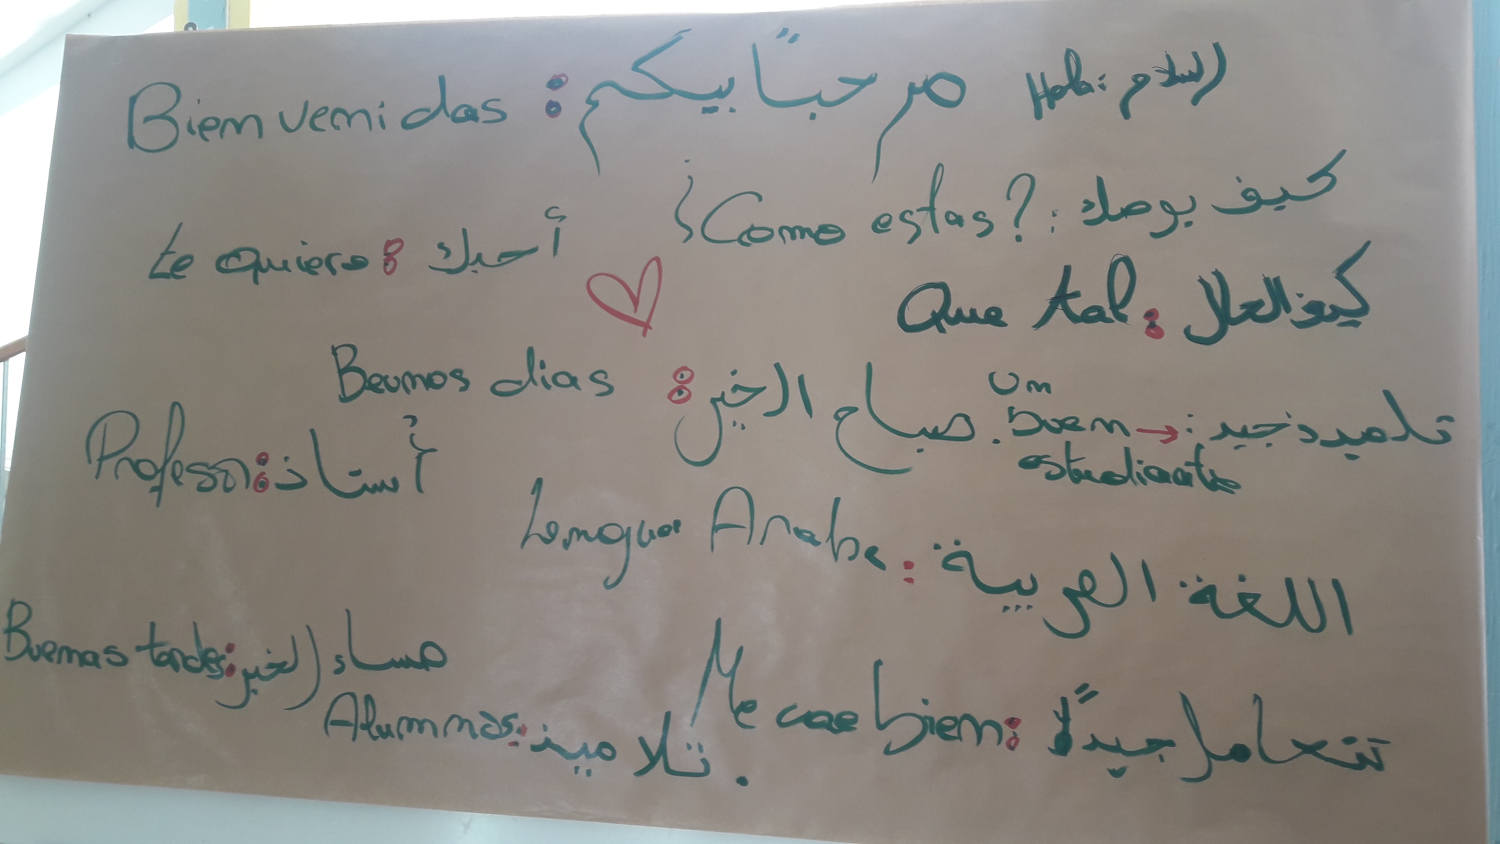 Bienvenidas : مرحبًا بيكم
Hola : السلام
¿Como estas? : كيف بوصك
te quiero : أحبك
Que tal : كيف الحال
Beunos dias : صباح الخير
Um buem estudiante → : تلميذ جيد
Professor : أستاذ
Lengua Arabe : اللغة العربية
Buemas tardes : مساء الخير
Me cae biem : تتعامل جيدًا
Alumnas : تلاميذ